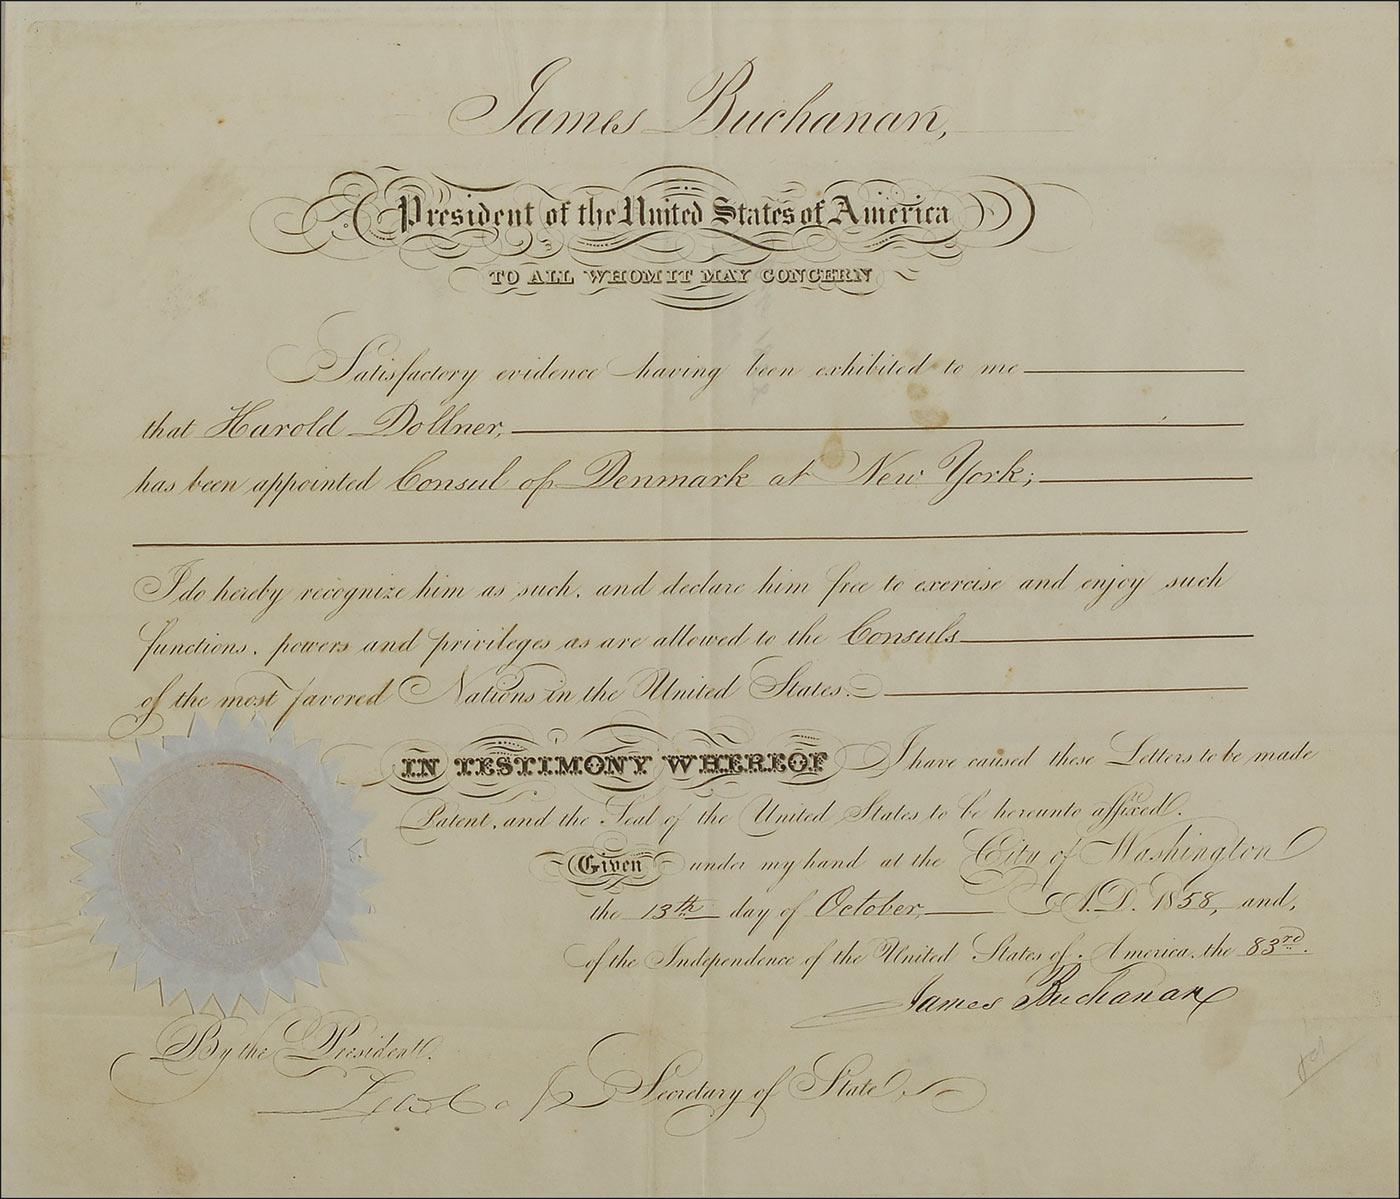 James Buchanan,
President of the United States of America
TO ALL WHOM IT MAY CONCERN
Satisfactory evidence having been exhibited to me
that Harold Dollner,
has been appointed Consul of Denmark at New York;
I do hereby recognize him as such, and declare him free to exercise and enjoy such
functions, powers and privileges as are allowed to the Consuls
of the most favored Nations in the United States.
IN TESTIMONY WHEREOF I have caused these Letters to be made
Patent, and the Seal of the United States to be hereunto affixed.
Given under my hand at the City of Washington
the 13th day of October, A.D. 1858, and,
of the Independence of the United States of America, the 83rd.
James Buchanan
By the President.
Secretary of State.